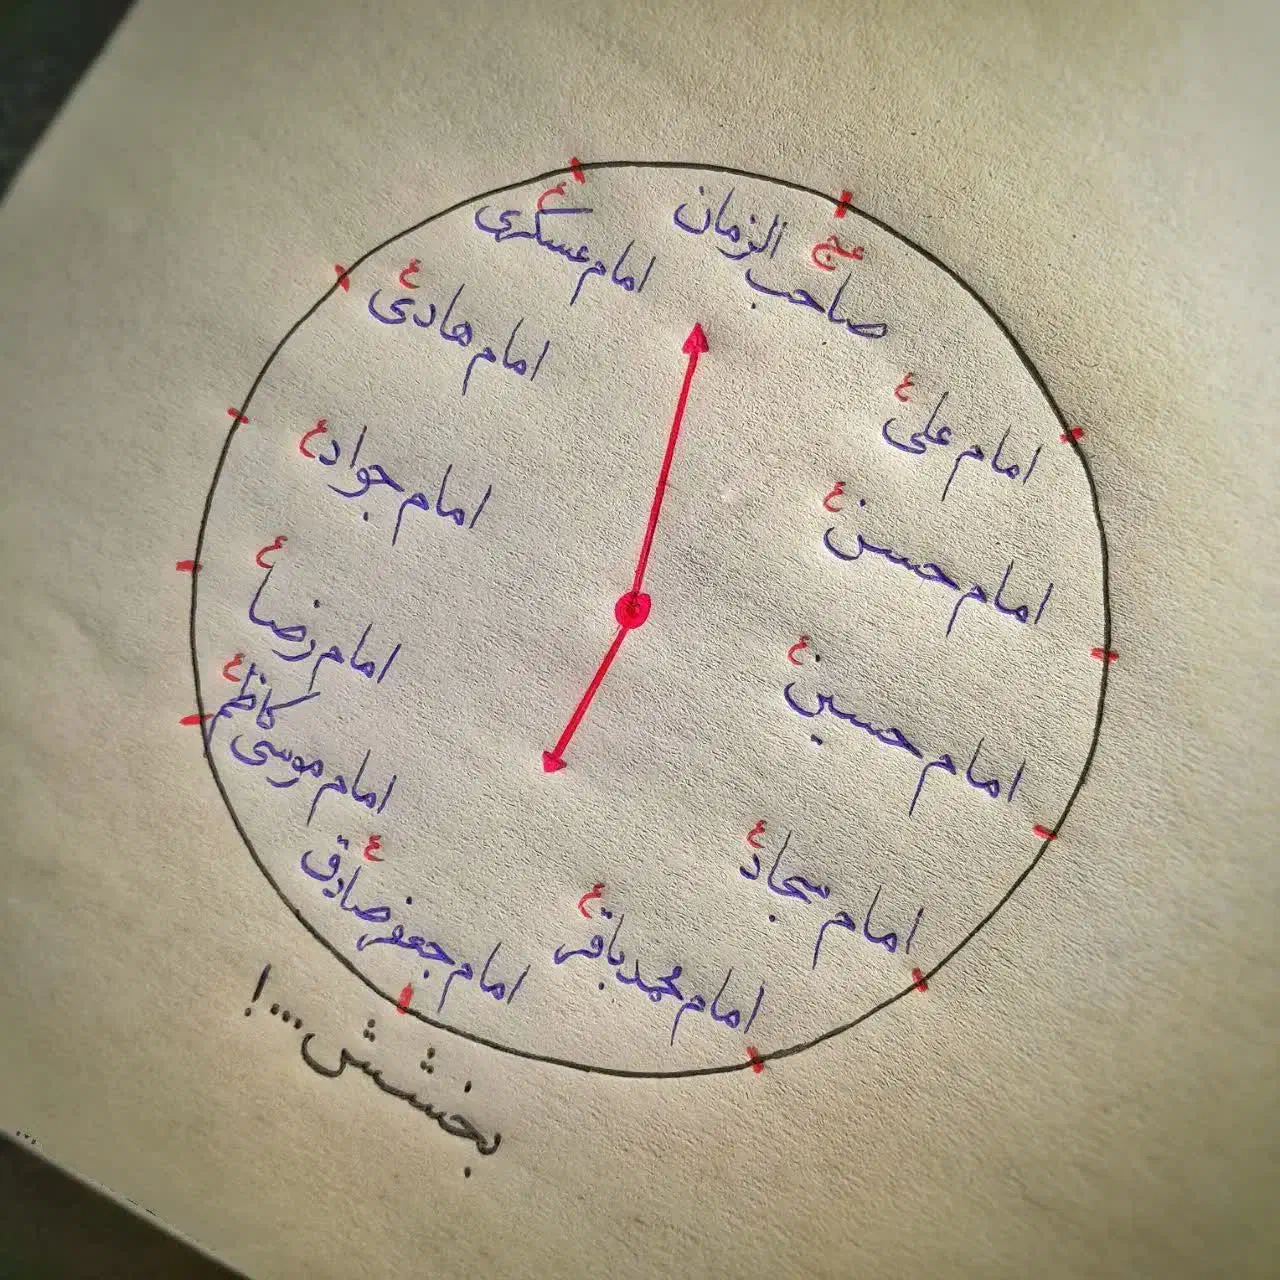 صاحب الزمان عج
امام علی ع
امام حسن ع
امام حسین ع
امام سجاد ع
امام محمد باقر ع
امام جعفر صادق ع
امام موسی کاظم ع
امام رضا ع
امام جواد ع
امام هادی ع
امام عسکری ع
بخشش...!